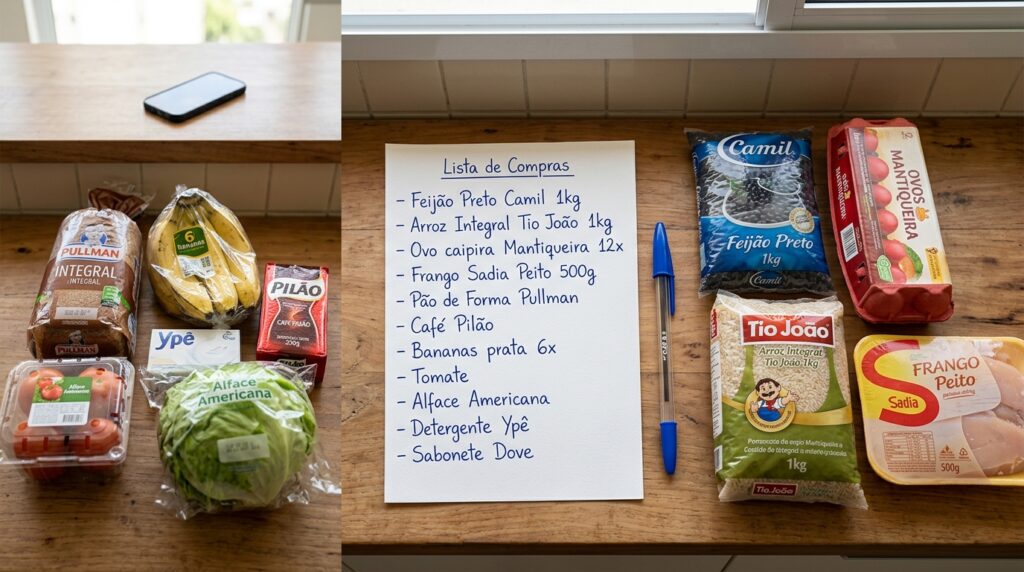 PULLMAN
INTEGRAL
INTEGRAL
PULLMAN
6
bananas
PILÃO
250g
Ypê
Alface
Americana
Lista de Compras
- Feijão Preto Camil 1kg
- Arroz Integral Tio João 1kg
- Ovo caipira Mantiqueira 12x
- Frango Sadia Peito 500g
- Pão de Forma Pullman
- Café Pilão
- Bananas prata 6x
- Tomate
- Alface Americana
- Detergente Ypê
- Sabonete Dove
Camil
Feijão Preto
1kg
Camil
OVOS
MANTIQUEIRA
Tio João
Arroz Integral
Tio João 1kg
1kg
Tio João
FRANGO
Peito
Sadia
500g